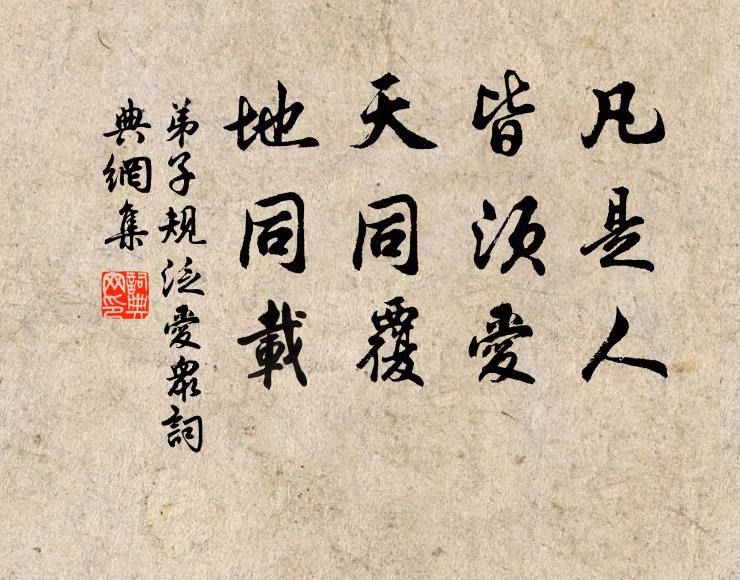 凡是人
皆須愛
天同覆
地同載
弟子規泛愛眾詞
典網集
詞典
网印